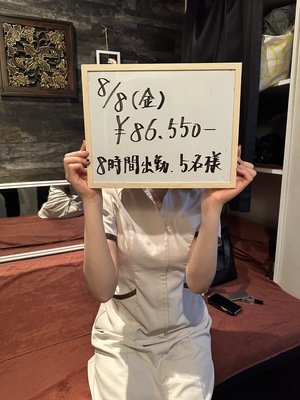 8/8(金)
¥86.550-
8時間出勤.5名様